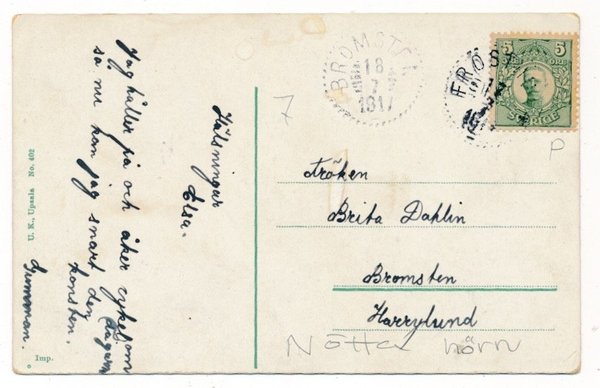 Jag håller på och åker cykel om dagarna
så nu kan jag snart den
konsten.
Hälsningar
Elsa.
Gumman.
U. K., Upsala No. 402
Imp.
BROMSTEN
18
7
1917
FRÖS
5 5
ÖRE
SVERIGE
7
P
Fröken
Brita Dahlin
Bromsten
Harrylund
Nötta hörn